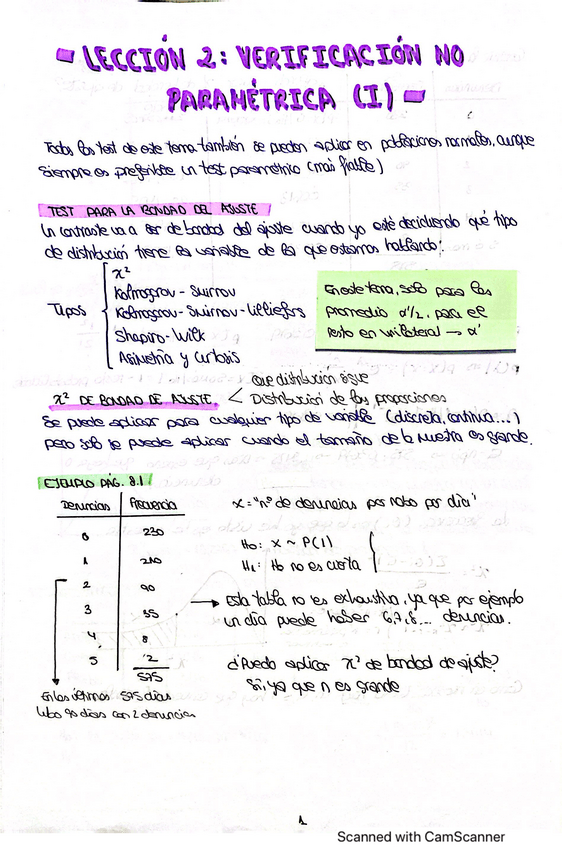 LECCIÓN 2: VERIFICACIÓN NO
PARAMÉTRICA (I)
Todos los test de este tema también se pueden aplicar en poblaciones normales, aunque
siempre es preferible un test paramétrico (más fiable)
TEST PARA LA BONDAD DEL AJUSTE
Un contraste va a ser de bondad del ajuste cuando yo esté decidiendo qué tipo
de distribución tiene la variable de la que estamos hablando:
Tipos
χ²
Kolmogrov - Smirnov
Kolmogrov - Smirnov - Lilliefors
Shapiro-Wilk
Asimetría y curtosis
En este tema, solo para las
promedio α'/2, para el
resto en unilateral → α'
χ² DE BONDAD DE AJUSTE.
Que distribución sigue
Distribución de las proporciones
Se puede aplicar para cualquier tipo de variable (discreta, continua...)
pero solo se puede aplicar cuando el tamaño de la muestra es grande.
EJEMPLO PÁG. 8.1
Denuncias Frecuencia
0 230
1 210
2 90
3 35
4 8
5 2
575
En los últimos 575 días
hubo 90 días con 2 denuncias
X = "nº de denuncias por robo por día"
H₀: X ~ P(1)
H₁: H₀ no es cierta
Esta tabla no es exhaustiva, ya que por ejemplo
un día puede haber 6,7,8... denuncias.
¿Puedo aplicar χ² de bondad de ajuste?
Sí, ya que n es grande
1
Scanned with CamScanner